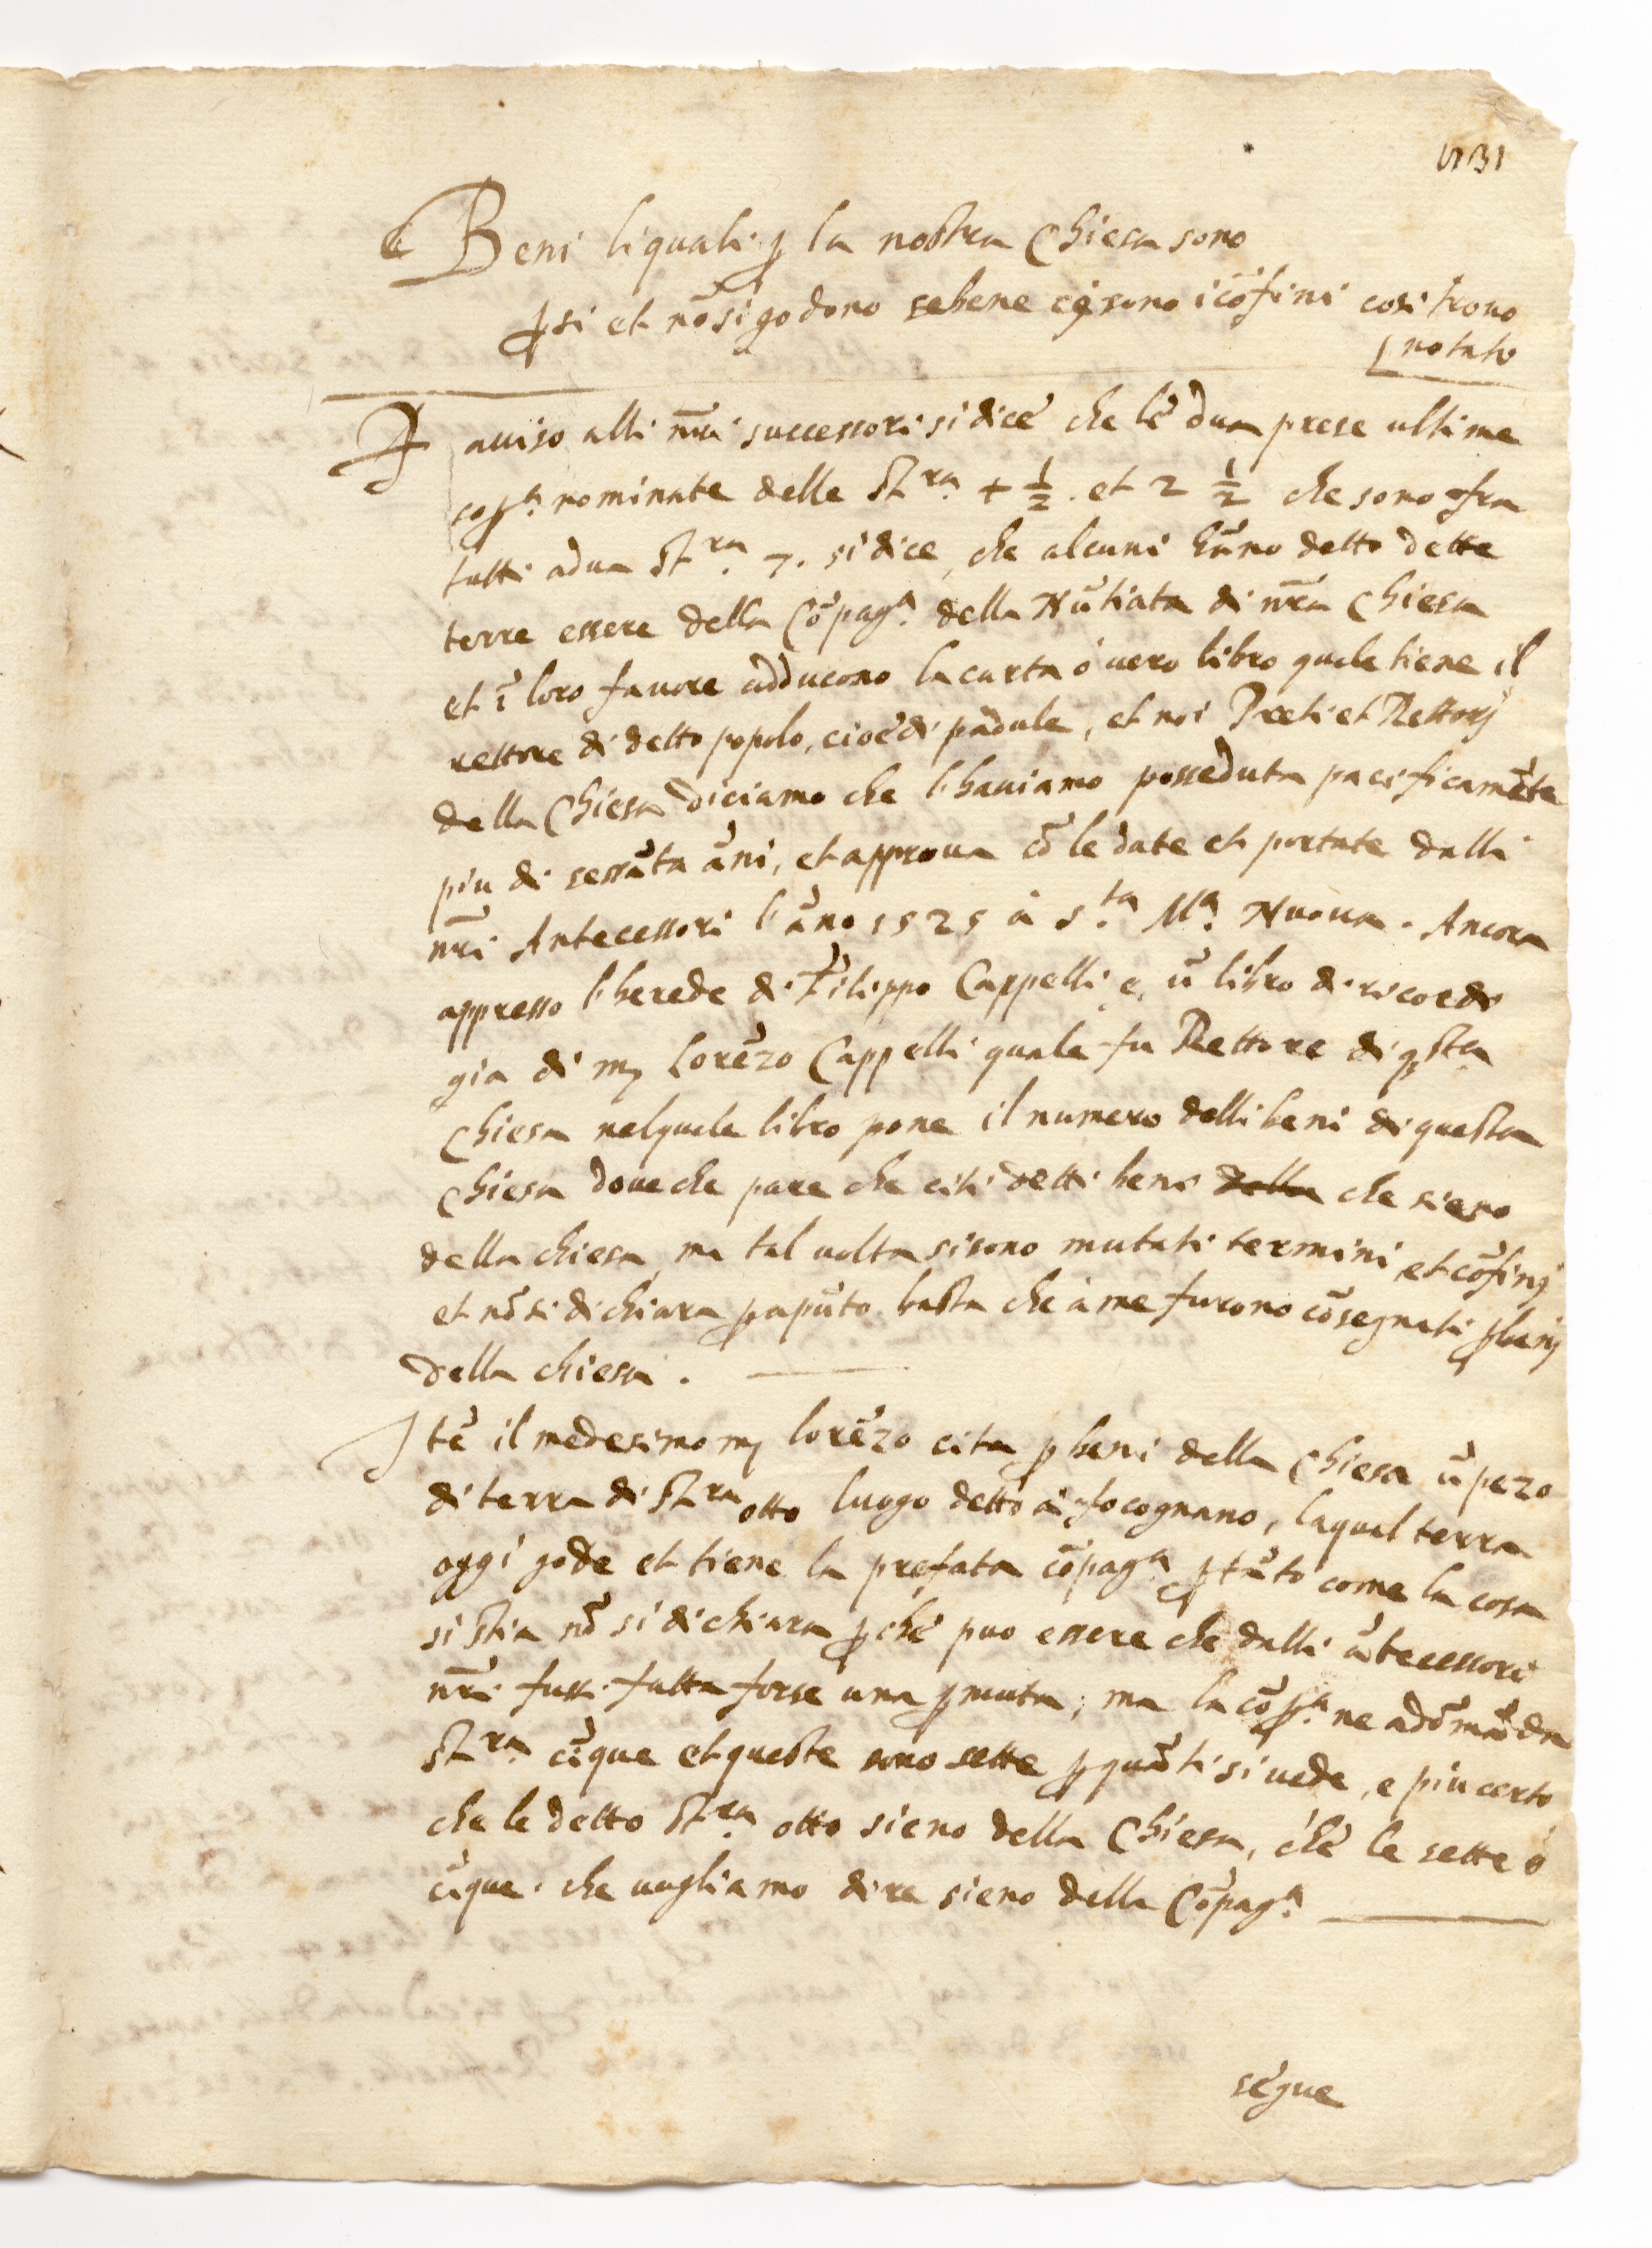 Beni liquali p la nostra Chiesa sono
psi et nō si godono sebene ci sono i cōfini cosi trovo
notato
A aviso alli nr̄i successori si dice che le dua prese ultime
sopª. nominate delle Stra. 4 ½. et 2 ½ che sono fra
tutti adua Stra. 7. si dice, che alcuni hāno detto dette
terre essere della Cōpagª. della Nūtiata di nr̄a Chiesa
et ī loro favore adducono la carta o vero libro quale tiene il
rettore di detto popolo, cioè di padule, et noi Preti et Rettorj
della Chiesa diciamo che l'haviamo posseduta pacificamēte
piu di sessāta āni, et approva cō le date et portate dalli
nr̄i Antecessori l'āno 1525 à S.ta Mª. Nuova. Ancora
appresso l'herede di Filippo Cappelli e, ū libro di ricordi
gia di m Lorēzo Cappelli quale fu Rettore di qsta
Chiesa nelquale libro pone il numero delli beni di questa
Chiesa dove che pare che citi detti beni della che sieno
della chiesa, ma tal volta si sono mutati termini et cōfinj
et nō si dichiara p apūto basta che à me furono cōsegnati p benj
della chiesa.
Itē il medesimo m lorēzo cita p beni della Chiesa ū pezo
di terra di Stra otto luogo detto à focognano, laqual terra
oggi gode et tiene la prefata cōpagª p tāto come la cosa
si stia nō si dichiara pchè puo essere che dalli ātecessori
nr̄i fussi fatta forse una pmuta; ma la cōpª. ne adomāda
Stra. cīque et queste sono sette p quāto si vede, e piu certo
che le detto Stra. otto sieno della Chiesa, chè le sette ò
cīque che vogliamo dire sieno della Cōpagª.
segue